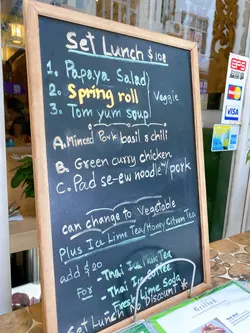 Set Lunch $108
1. Papaya Salad
2. Spring roll
3. Tom yum Soup
Veggie
A. Minced Pork basil & chili
B. Green curry chicken
C. Pad se-ew noodle w/ pork
can change to Vegetable
Plus Ice Lime Tea/Honey Citron Tea
add $20
For
- Thai Ice Milk Tea
- Thai Ice Coffee
- Fresh Lime Soda
Set Lunch No Discount *
EPS
VISA